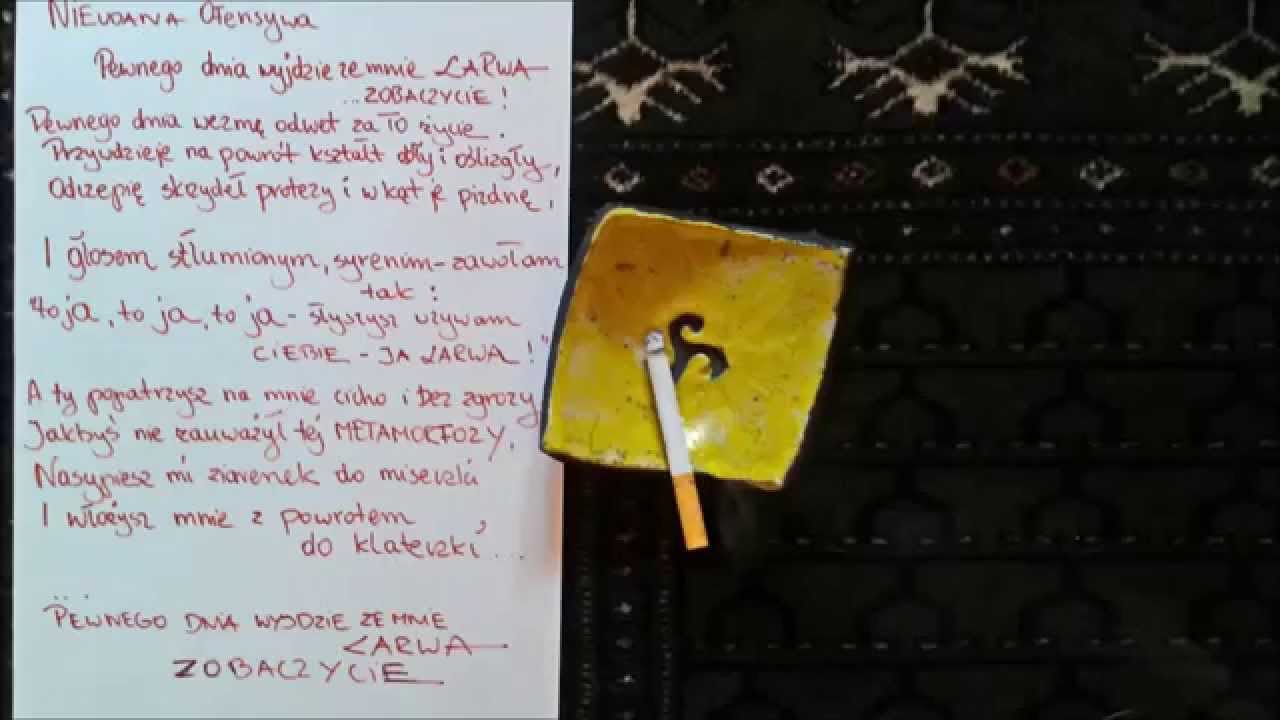 NIEUDANA Ofensywa
Pewnego dnia wyjdzie ze mnie LARWA
...ZOBACZYCIE!
Pewnego dnia wezmę odwet za TO życie.
Przyudzieję na powrót kształt obły i oślizgły,
Odczepię skrzydeł protezy i w kąt je pizdnę,
I głosem stłumionym, syrenim - zawołam
tak:
"to ja, to ja, to ja - słyszysz wzywam
CIEBIE - JA LARWA!"
A ty popatrzysz na mnie cicho i bez zgrozy
Jakbyś nie zauważył tej METAMORFOZY.
Nasypiesz mi ziarenek do miseczki
I włożysz mnie z powrotem
do klateczki,...
...
PEWNEGO DNIA WYJDZIE ZE MNIE
LARWA
ZOBACZYCIE